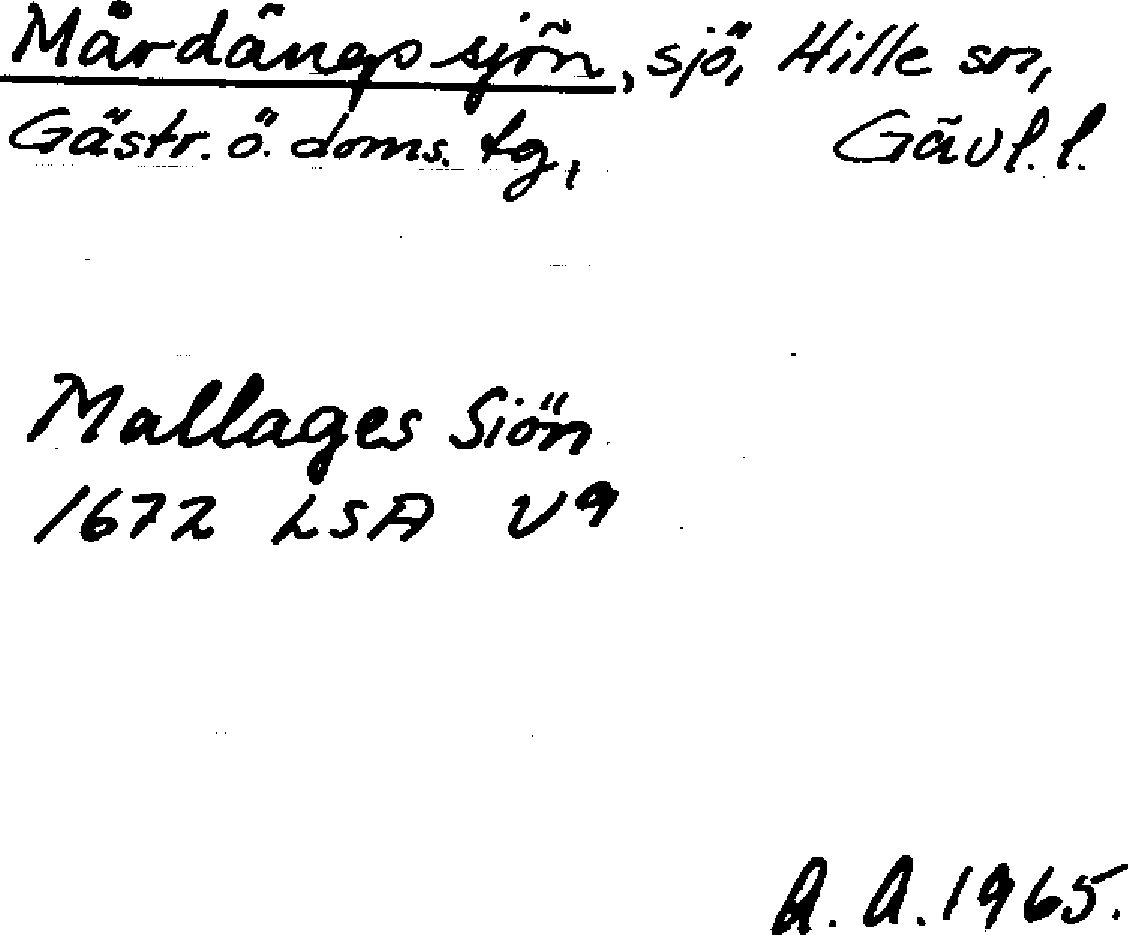 Mårdängssjön, sjö, Hille sn,
Gästr. ö. doms. tg, Gävl. l.
Mallages Siön
1672 LSA U9
A. A. 1965.